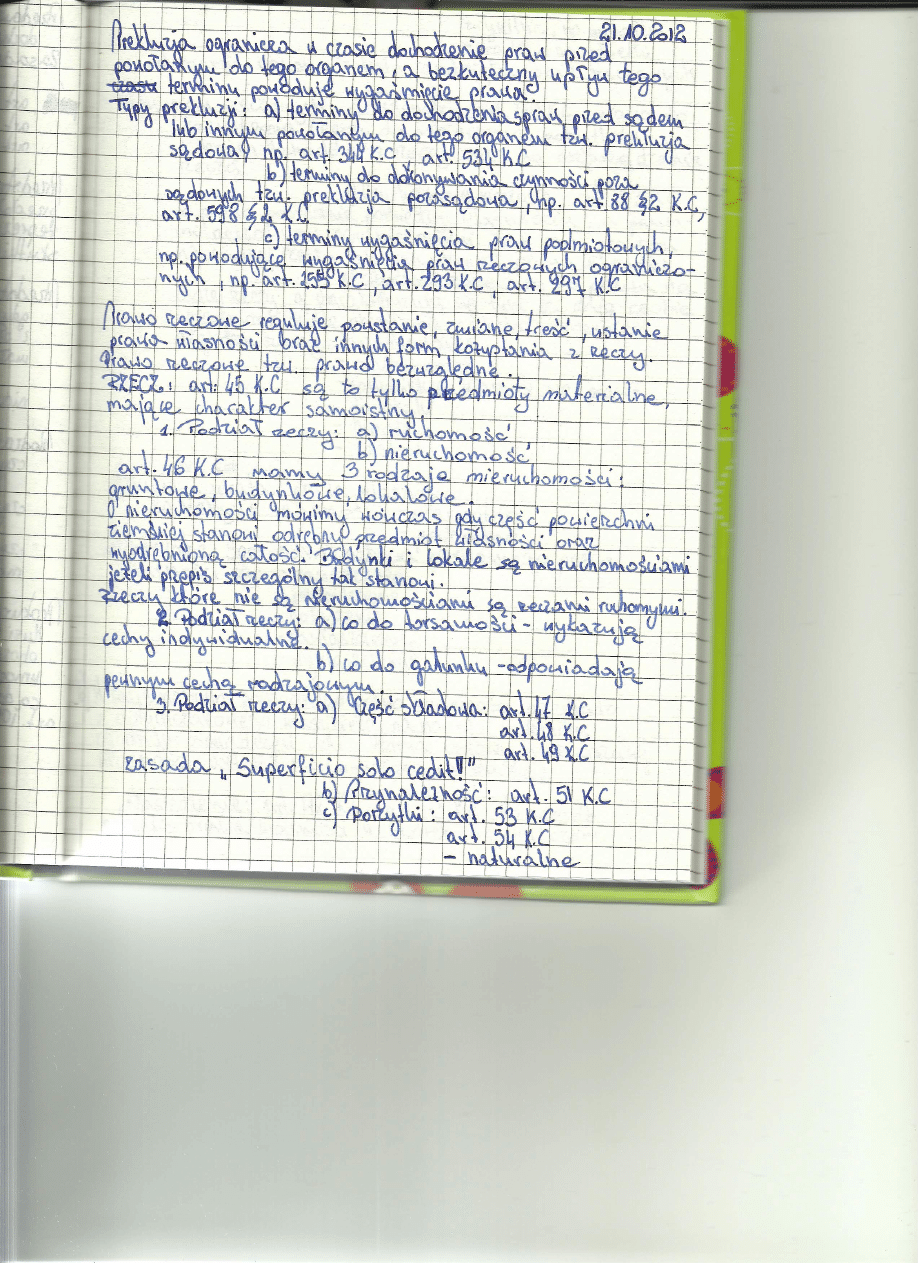 21.10.2012
Prekluzja ogranicza w czasie dochodzenie praw przed
powołanym do tego organem, a bezkuteczny upływ tego
czasu terminu powoduje wygaśnięcie prawa.
Typy prekluzji: a) terminy do dochodzenia spraw przed sądem
lub innym powołanym do tego organem tzw. prekluzja
sądowa, np. art. 344 K.C, art. 534 K.C
b) terminy do dokonywania czynności poza
sądowych tzw. prekluzja pozasądowa, np. art. 88 §2 K.C,
art. 598 §2 K.C
c) terminy wygaśnięcia praw podmiotowych,
np. powodujące wygaśnięcia praw rzeczowych ograniczo-
nych, np. art. 255 K.C, art. 293 K.C, art. 297 K.C
Prawo rzeczowe reguluje powstanie, zmianę, treść, ustanie
prawa własności oraz innych form kożystania z rzeczy.
Prawo rzeczowe tzw. prawo bezwzględne.
RZECZ: art. 45 K.C są to tylko przedmioty materialne,
mające charakter samoistny.
1. Podział rzeczy: a) ruchomość,
b) nieruchomość
art. 46 K.C mamy 3 rodzaje nieruchomości:
gruntowe, budynkowe, lokalowe.
O nieruchomości mówimy wówczas gdy część powierzchni
ziemskiej stanowi odrębny przedmiot własności oraz
wyodrębnioną całość. Budynki i lokale są nieruchomościami
jeżeli przepis szczególny tak stanowi.
Rzeczy które nie są nieruchomościami są rzeczami ruchomymi.
2. Podział rzeczy: a) co do torsamości - wykazują
cechy indywidualne.
b) co do gatunku - odpowiadają
pewnym cechą rodzajowym.
3. Podział rzeczy: a) Część składowa: art. 47 K.C
art. 48 K.C
art. 49 K.C
zasada „Superficio solo cedit!"
b) Przynależność: art. 51 K.C
c) Pożytki: art. 53 K.C
art. 54 K.C
- naturalne